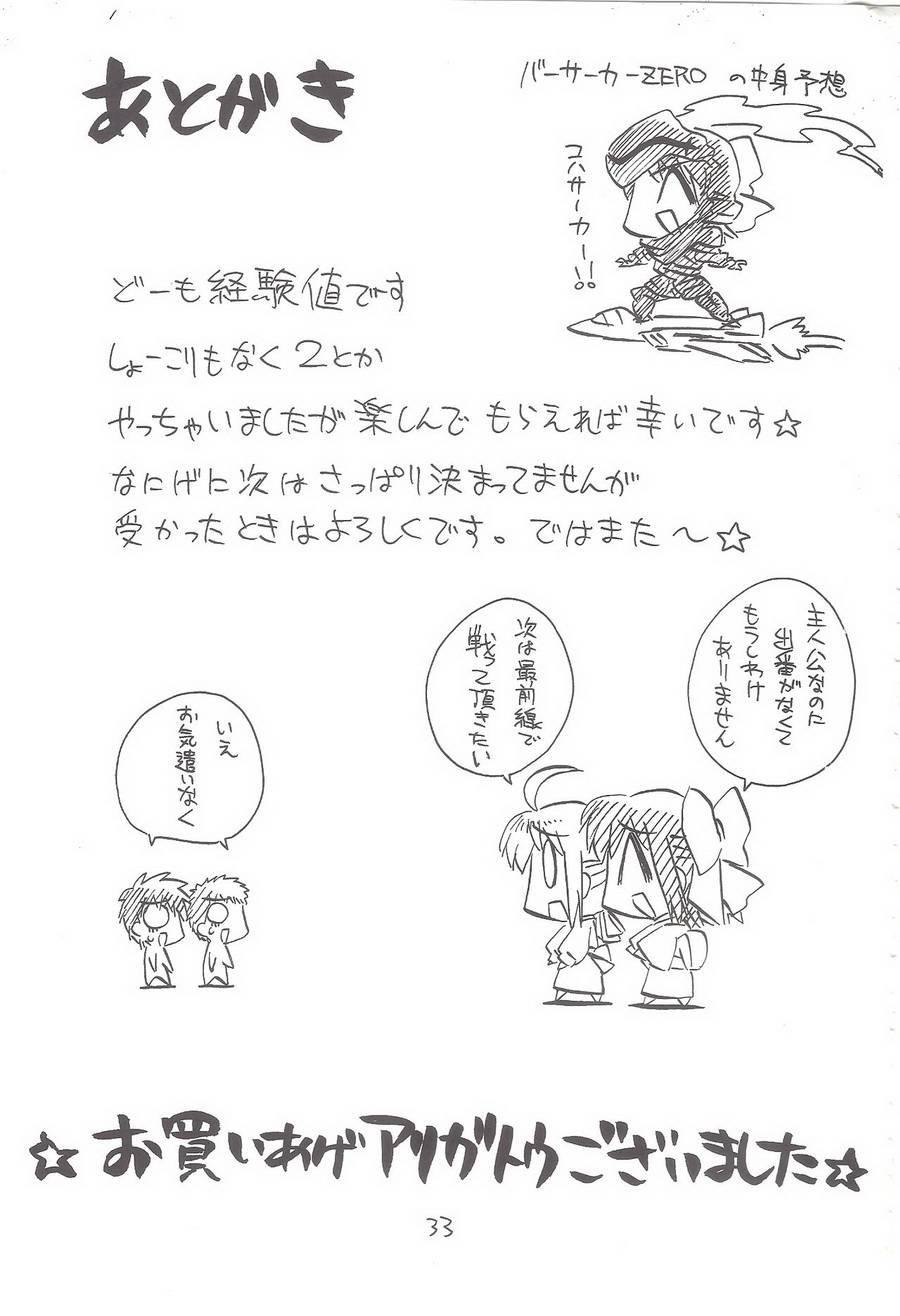 あとがき
バーサーカーZEROの中身予想
コハサーカー!!
どーも経験値です
しょーこりもなく2とか
やっちゃいましたが楽しんでもらえれば幸いです☆
なにげに次はさっぱり決まってませんが
受かったときはよろしくです。ではまた〜☆
主人公なのに
出番がなくて
もうしわけ
ありません
次は最前線で
戦って頂きたい
いえ
お気遣いなく
☆お買いあげアリガトウございました☆
33